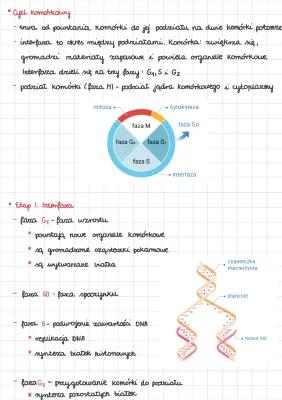 • Cykl komórkowy
- trwa od powstania komórki do jej podziału na dwie komórki potomne
- interfaza to okres między podziałami. Komórka zwiększa się,
gromadzi materiały zapasowe i powiela organelle komórkowe.
Interfaza dzieli się na trzy fazy: G1, S i G2
- podział komórki (faza M) - podział jądra komórkowego i cytoplazmy
mitoza
cytokineza
faza M
faza G0
faza G2
faza G1
faza S
interfaza
• Etap 1. Interfaza
- faza G1 - faza wzrostu
• powstają nowe organelle komórkowe
• są gromadzone cząsteczki pokarmowe
• są wytwarzane białka
cząsteczka
macierzysta
- faza G0 - faza spoczynku
stara nić
- faza S - podwojenie zawartości DNA
• replikacja DNA
nowa nić
• synteza białek histonowych
- faza G2 - przygotowanie komórki do podziału
• synteza pozostałych białek